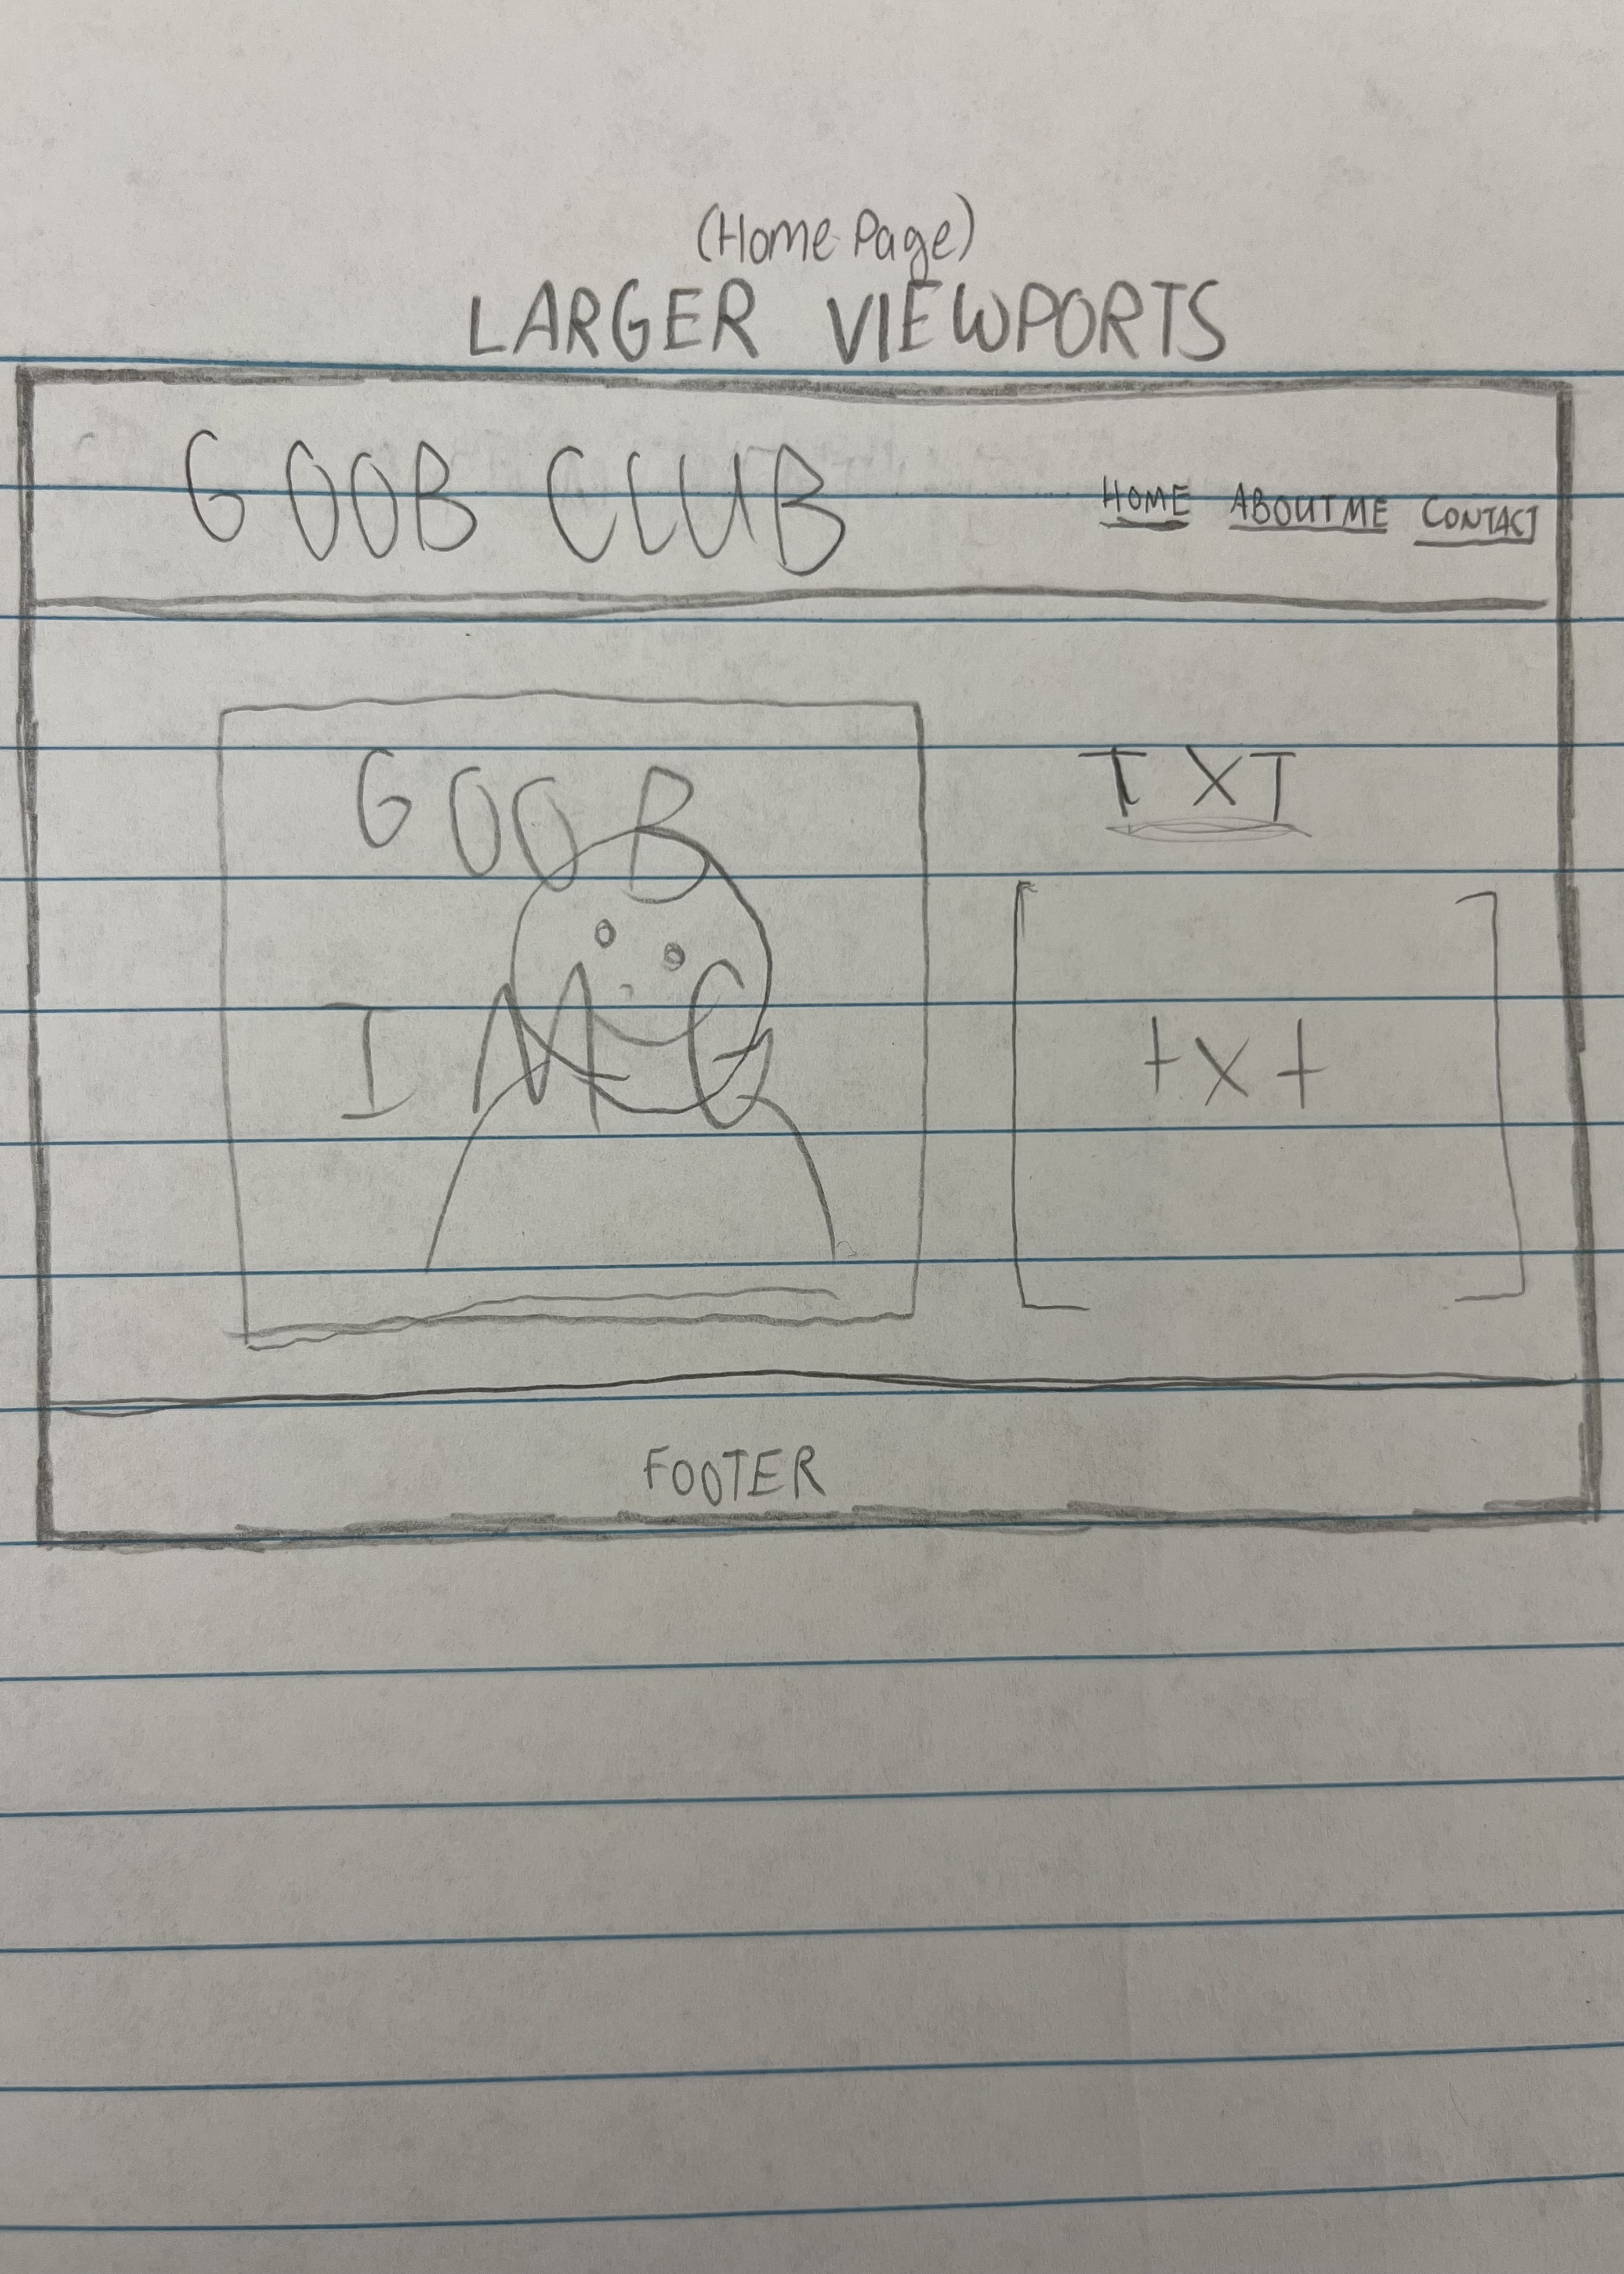 (Home Page)
LARGER VIEWPORTS
GOOB CLUB
HOME ABOUT ME CONTACT
GOOB
IMG
TXT
txt
FOOTER